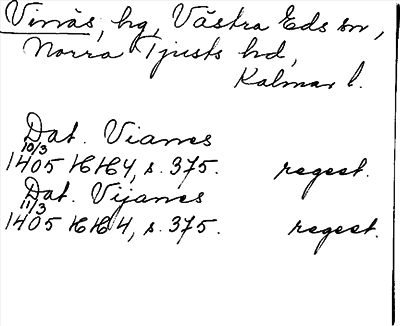 Vinäs, hg, Västra Eds sn,
Norra Tjusts hd,
Kalmar l.
Dat. Vianes
10/3
1405 HH4, s. 375. regest.
Dat. Vijanes
11/3
1405 HH4, s. 375. regest.